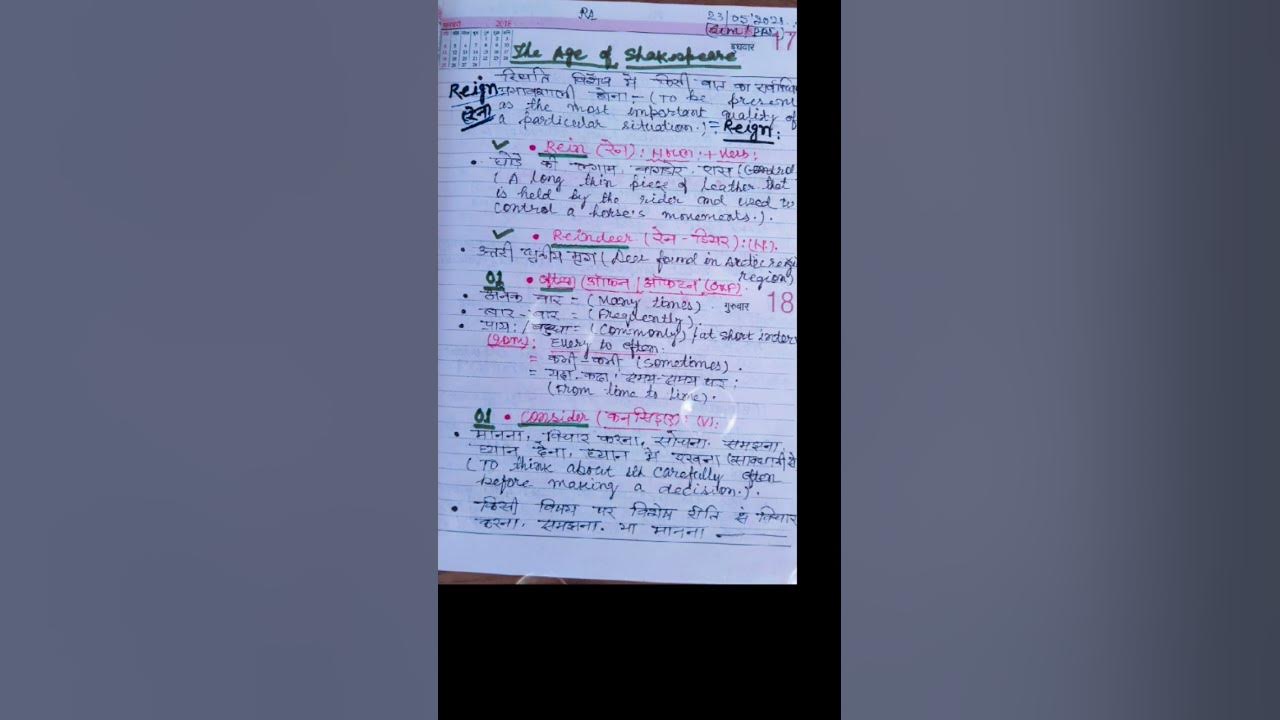 RA
23/05/2021
2018
बुधवार 17
The Age of Shakespeare
• स्थिति विशेष में किसी बात का सर्वाधिक
Reign प्रभावशाली होना :- (To be present
as the most important quality of
रेन a particular situation.) = Reign:
✓ • Rein (रेन): Noun + Verb:
• घोड़े की लगाम, बागडोर, रास (Control
(A long thin piece of leather that
is held by the rider and used to
control a horse's movements.).
✓ • Reindeer (रेन-डियर): (N.).
• उत्तरी ध्रुवीय मृग (Deer found in Arctic
region)
01 • often (ऑफन / ऑफटन)
• अनेक बार = (Many times). गुरुवार 18
• बार-बार = (Frequently).
• प्रायः / बहुधा = (Commonly) / at short inter
Every so often:
= कभी-कभी (Sometimes).
= यदा-कदा, समय-समय पर:
(From time to time).
01 • Consider (कनसिडर): (V):
• मानना, विचार करना, सोचना, समझना,
ध्यान देना, ध्यान में रखना (सावधानी से
(To think about sth carefully often
before making a decision.).
• किसी विषय पर विशेष रीति से विचार
करना, समझना, या मानना